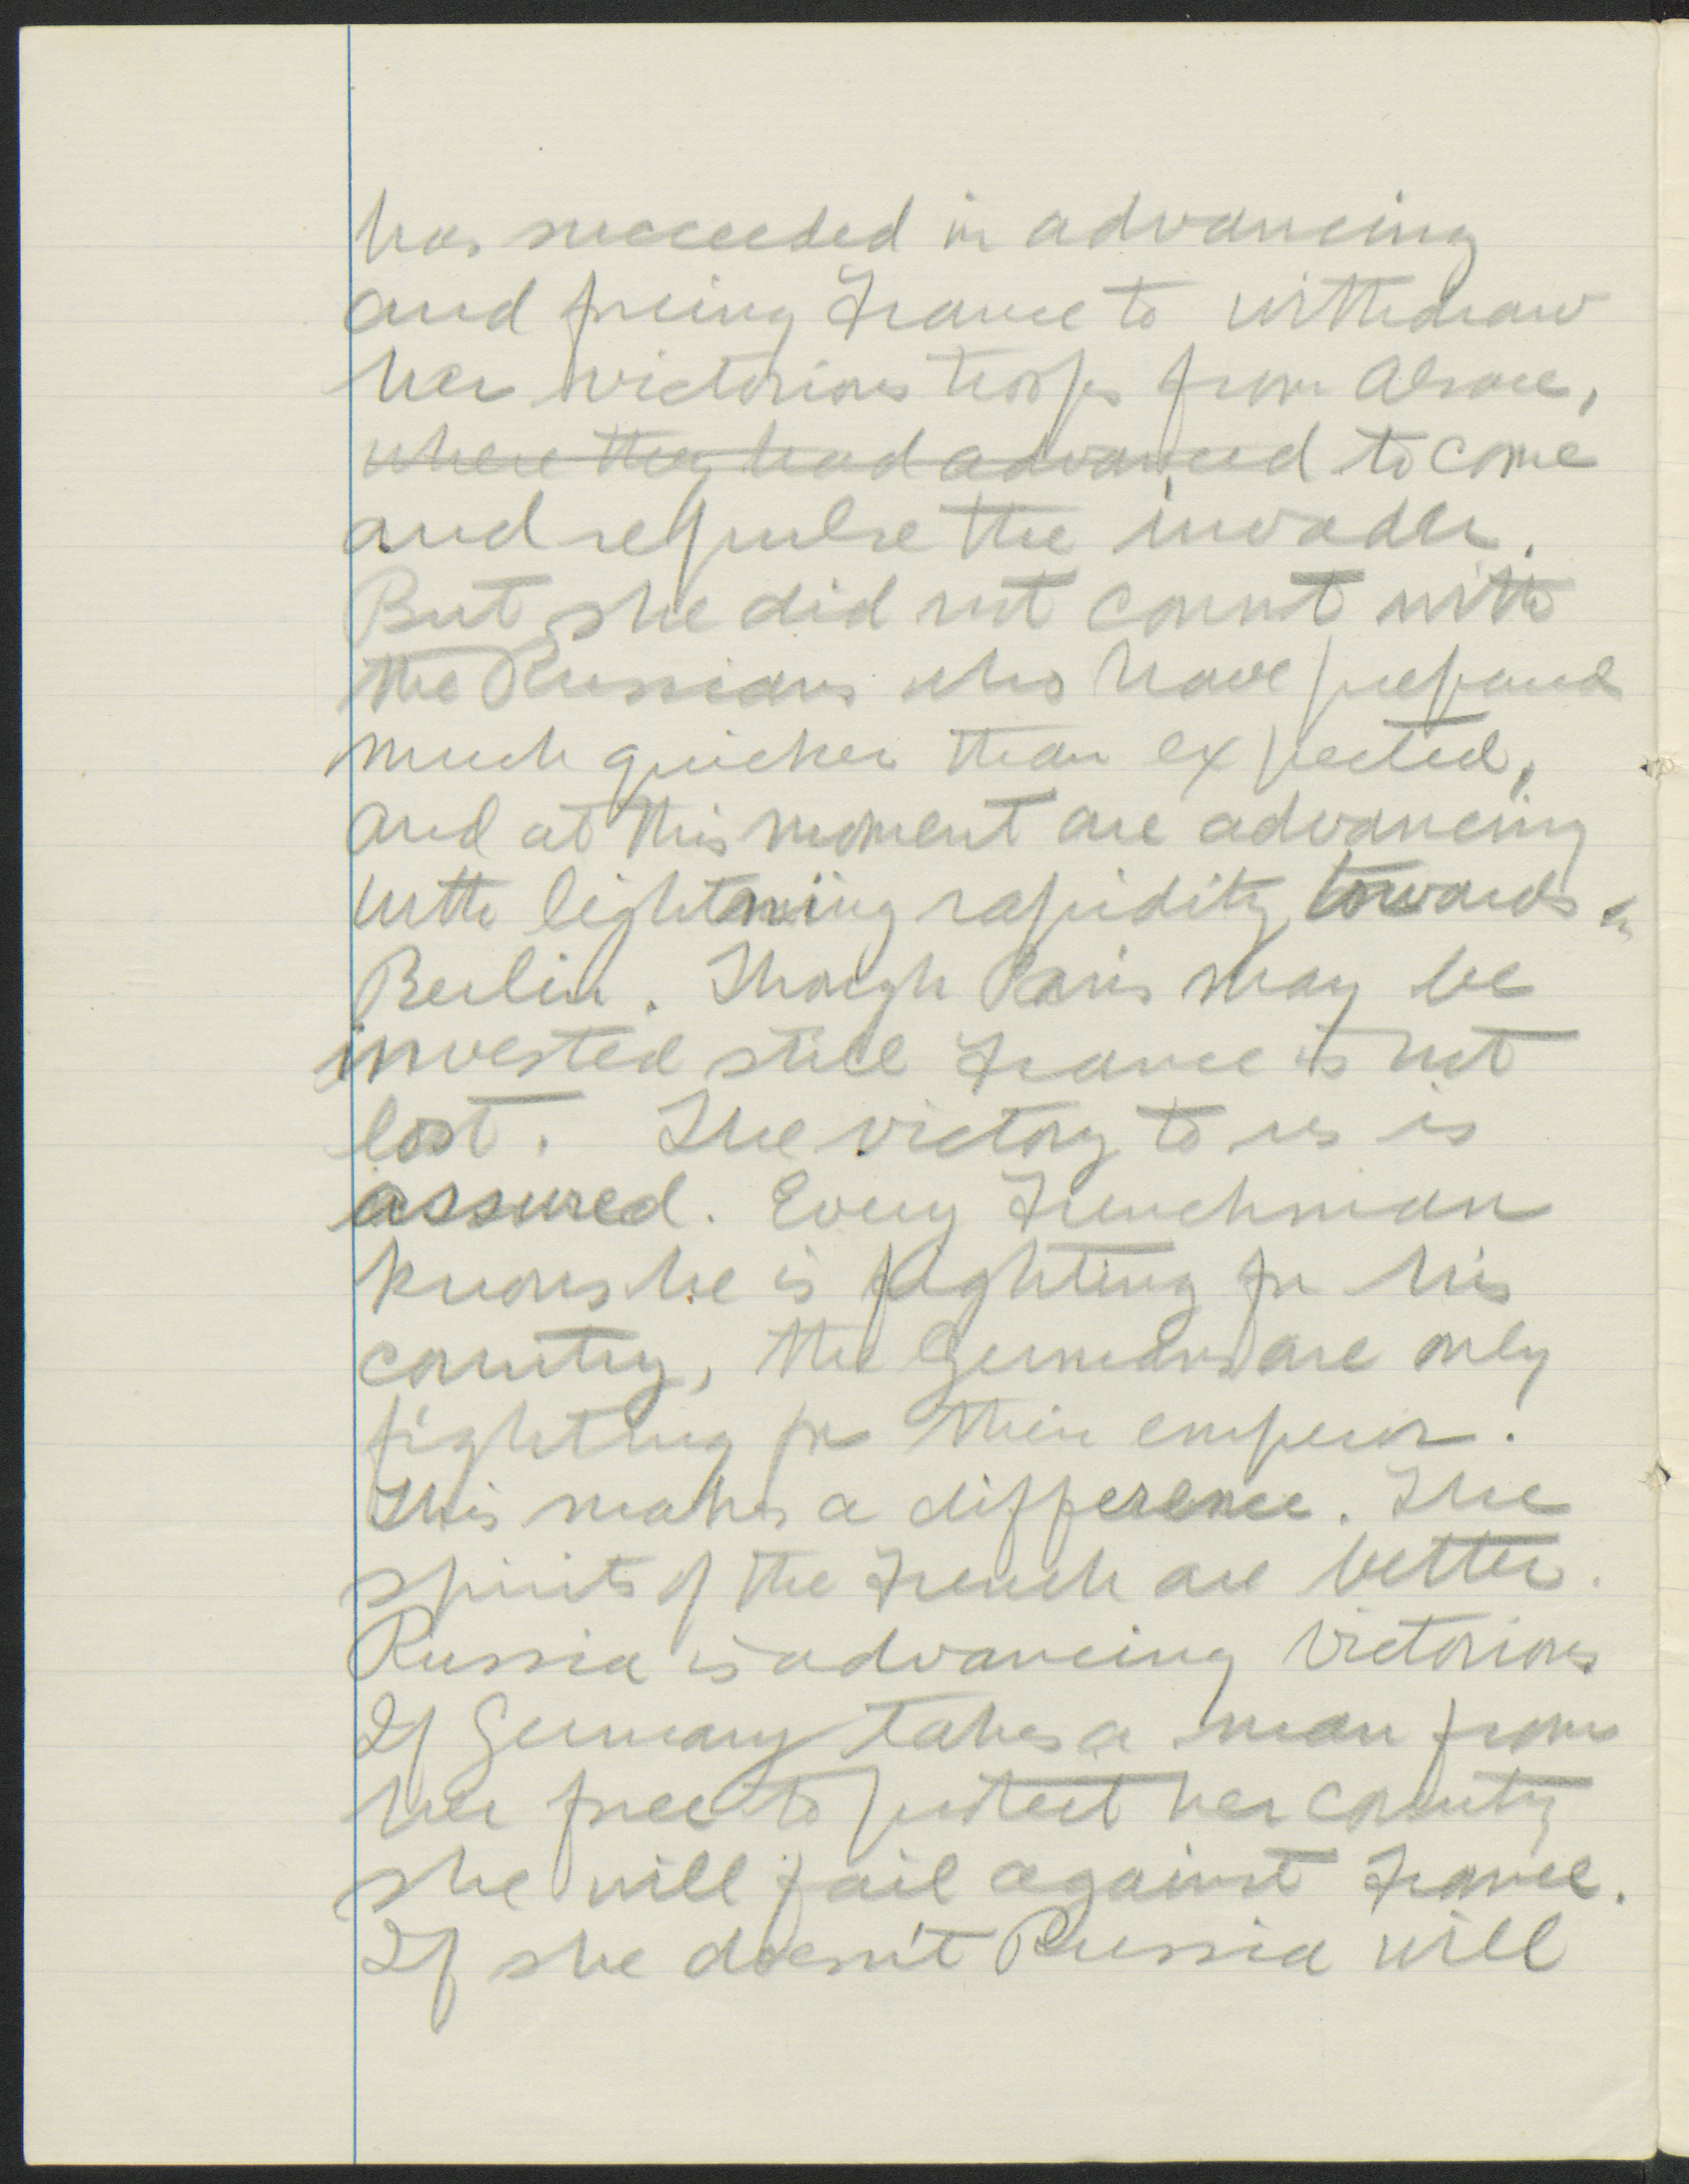 has succeeded in advancing
and forcing France to withdraw
her victorious troops from Alsace,
where they had advanced to come
and repulse the invader.
But she did not count with
the Russians who have prepared
much quicker than expected,
and at this moment are advancing
with lightning rapidity towards
Berlin. Though Paris may be
invested still France is not
lost. The victory to us is
assured. Every Frenchman
knows he is fighting for his
country, the Germans are only
fighting for their emperor.
This makes a difference. The
spirits of the French are better.
Russia is advancing victorious
If Germany takes a man from
her free to protect her country
she will fail against France.
If she doesn't Russia will